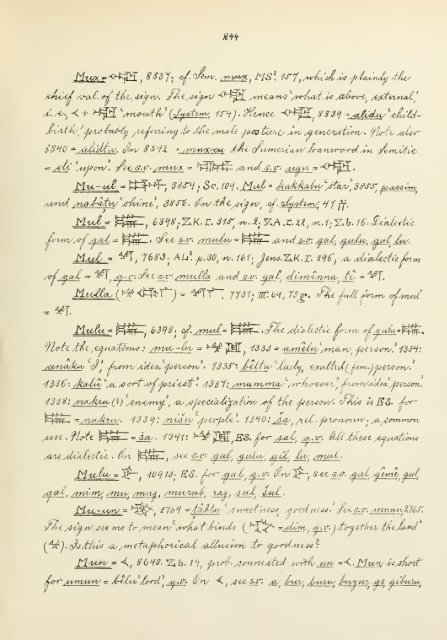 244
Mux = , 8837; cf. Sem. mux, MSL. 157, which is plainly the
chief val. of the sign. The sign means 'what is above, external,'
i.e., + 'mouth' (System, 154). Hence , 8839 = alidu 'child-
birth', probably referring to the male posture in generation. Note also
8840 = alittu. In 8842 = muxxu the Sumerian loanword in Semitic
= eli 'upon'. See s.v. mux = and s.v. ugu = .
Mu-ul = , 3854; Sc. 104. Mul = kakkabu 'star', 3855, passim,
und nabâṭu 'shine', 3856. On the sign, cf. System, 47 ff.
Mul = , 6398; Z.K. I. 315, n. 2; Z.A. I. 22, n. 1; Z.b. 16. Dialectic
form of gal = . See s.v. mulu = and s.v. gal, gulu, gal, lu.
Mul = , 7683; p. 30, n. 161; Jens. Z.K. I. 296, a dialectic form
of gal = , q.v. See s.v. mulla and s.v. gal, dimènna, = .
Mulla ( ) = , 7731; III. 69, 73. The full form of mul
= .
Mulu = , 6398; cf. mul = . The dialectic form of gulu = .
Note the equations: mu-lu = , 1333 = amêlu 'man, person.' 1334:
anâku 'I', from idea 'person'. 1335: bêltu 'lady, exalted (fem.) person.'
1336: kalû 'a sort of priest'. 1337: mamma 'whoever', from idea 'person'.
1338: nakru (?) 'enemy', a specialization of the person. This is ES. for
= nakru. 1339: nišu 'people'. 1340: ša, rel. pronoun; a common
use. Note = ša. 1341: , ES. for sal, q.v. All these equations
are dialectic. On , see s.v. gal, gulu, lu, mul.
Mulu = , 10913; ES. for gal, q.v. On , see s.v. gal, gème, gal,
gal, mim, mu, mug, murub, rag, sal, šal.
Mu-un = , 2764 = ṭâbtu 'sweetness, goodness.' See s.v. munu, 2765.
The sign seems to mean 'what binds ( = dim, q.v.) together the land'
( ). Is this a metaphorical allusion to goodness?
Mun = , 8640. Z.b. 14, prob. connected with un = . Mun is short
for umun = bêlu 'lord', q.v. On , see s.v. a, bur, buru, buzur, ge, giburu,